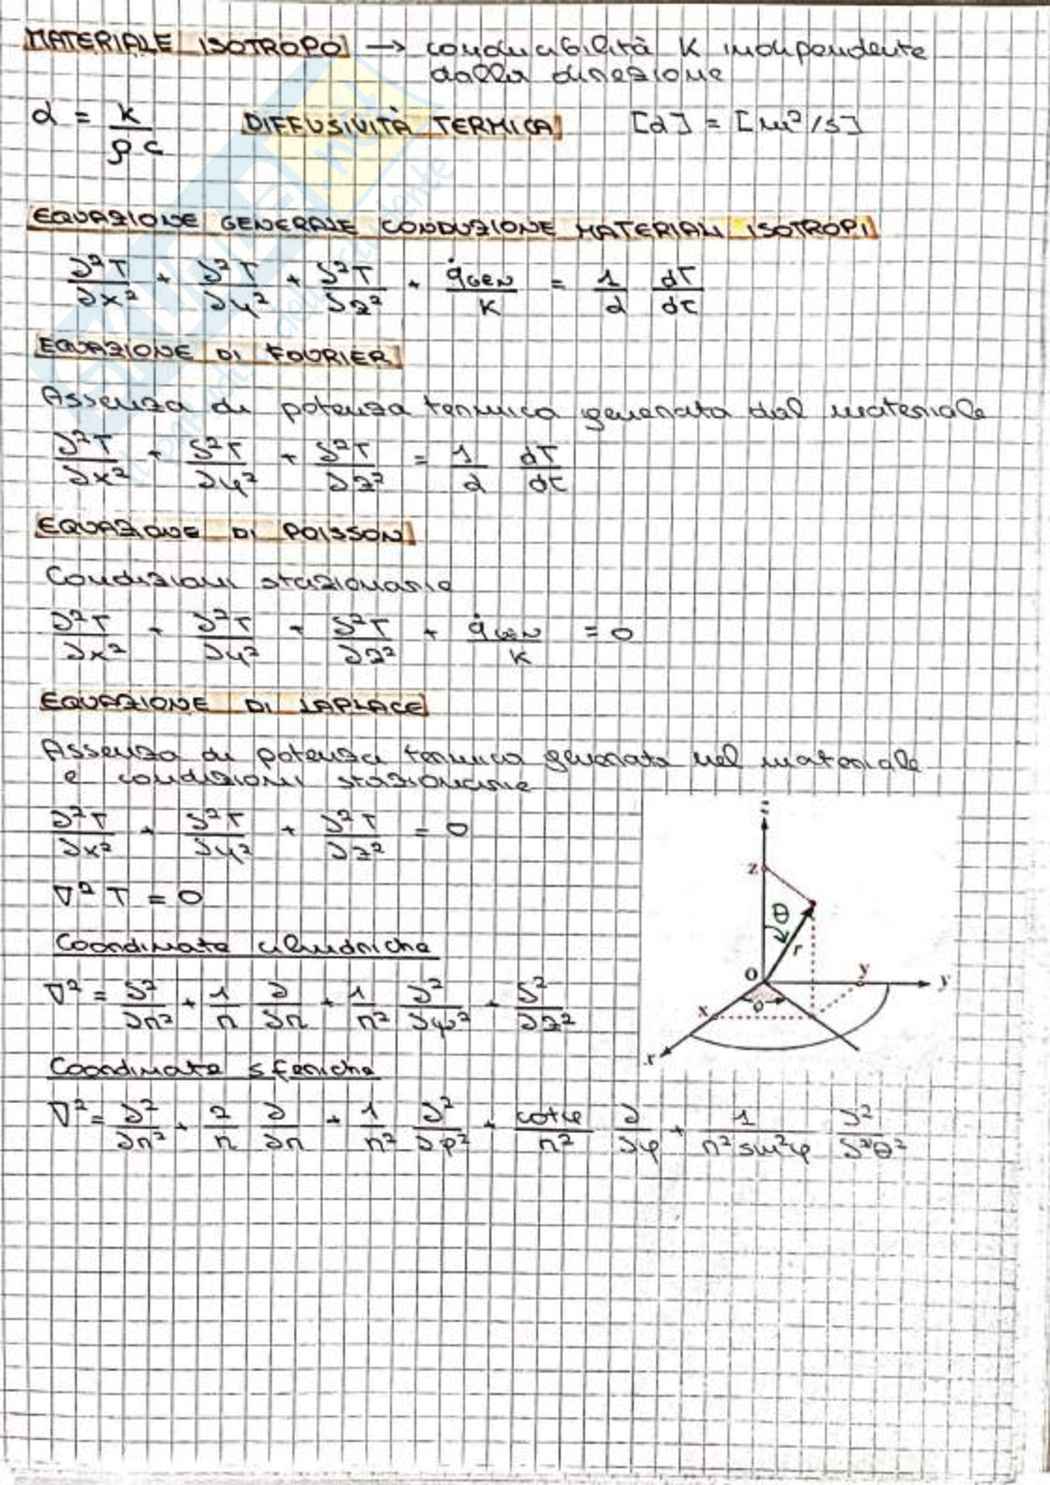 MATERIALE ISOTROPO → conducibilità K indipendente
dalla direzione
α = k / ρc DIFFUSIVITÀ TERMICA [α] = [m²/s]
EQUAZIONE GENERALE CONDUZIONE MATERIALI ISOTROPI
∂²T/∂x² + ∂²T/∂y² + ∂²T/∂z² + q̇GEN/K = 1/α dT/dτ
EQUAZIONE DI FOURIER
Assenza di potenza termica generata dal materiale
∂²T/∂x² + ∂²T/∂y² + ∂²T/∂z² = 1/α dT/dτ
EQUAZIONE DI POISSON
Condizioni stazionarie
∂²T/∂x² + ∂²T/∂y² + ∂²T/∂z² + q̇GEN/K = 0
EQUAZIONE DI LAPLACE
Assenza di potenza termica generata nel materiale
e condizioni stazionarie
∂²T/∂x² + ∂²T/∂y² + ∂²T/∂z² = 0
∇² T = 0
Coordinate cilindriche
∇² = ∂²/∂r² + 1/r ∂/∂r + 1/r² ∂²/∂φ² + ∂²/∂z²
Coordinate sferiche
∇² = ∂²/∂r² + 2/r ∂/∂r + 1/r² ∂²/∂φ² + cotφ/r² ∂/∂φ + 1/r²sin²φ ∂²/∂²θ²
z
z
θ
r
O
y
y
x
φ
x